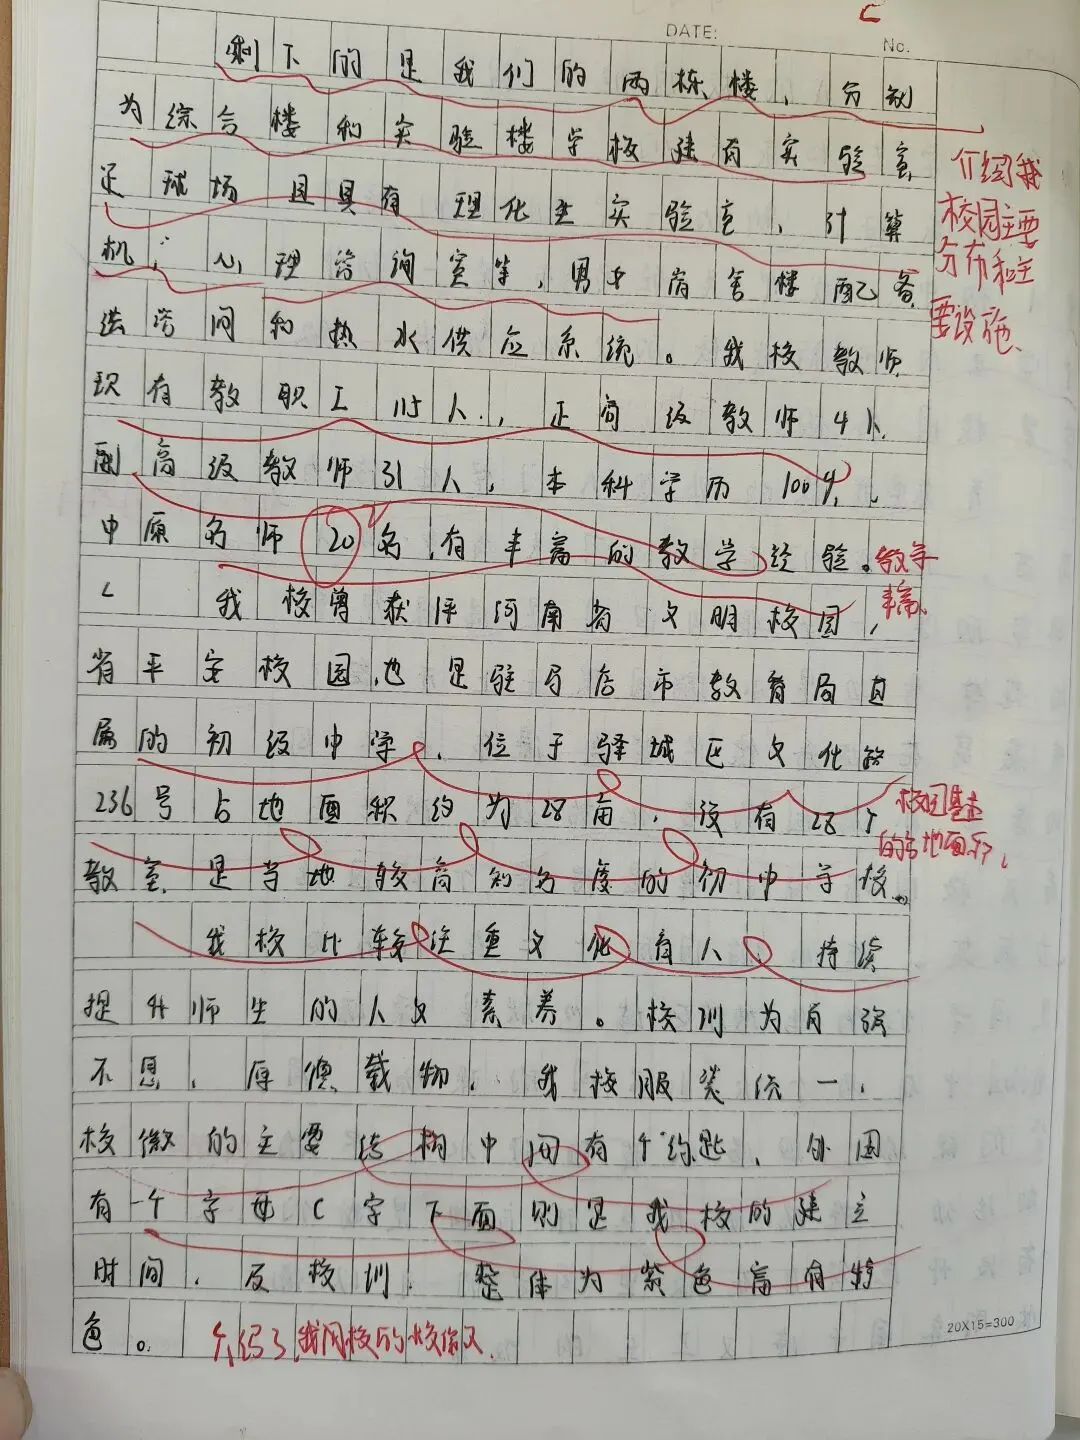 DATE:
No.
剩下的是我们的两栋楼，分别
为综合楼和实验楼学校建有实验室，
足球场且具有理化生实验室，计算
机，心理咨询室等，男女宿舍楼配备
洗浴间和热水供应系统。我校教师
现有教职工115人，正高级教师4人，
副高级教师31人，本科学历100%，
中原名师20名，有丰富的教学经验。
我校曾获评河南省文明校园，
省平安校园，也是驻马店市教育局直
属的初级中学，位于驿城区文化路
236号占地面积约为28亩，设有28个
教室，是当地较高知名度的初中学校。
我校比较注重文化育人，持续
提升师生的人文素养。校训为自强
不息，厚德载物，我校服装统一，
校徽的主要结构中间有个钥匙，外围
有一个字母C字下面则是我校的建立
时间，及校训，整体为紫色富有特
色。
介绍我
校园主要
分布和主
要设施、
教学
丰富
校园基本
的占地面积，
介绍了我们校的校徽
20X15=300